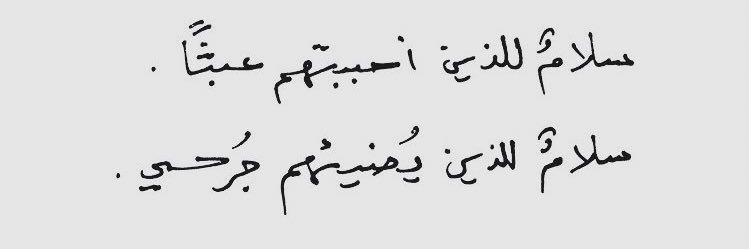 سلامٌ للذين أحببتهم عبثًا .
سلامٌ للذين يُضنيهم جُرحي .